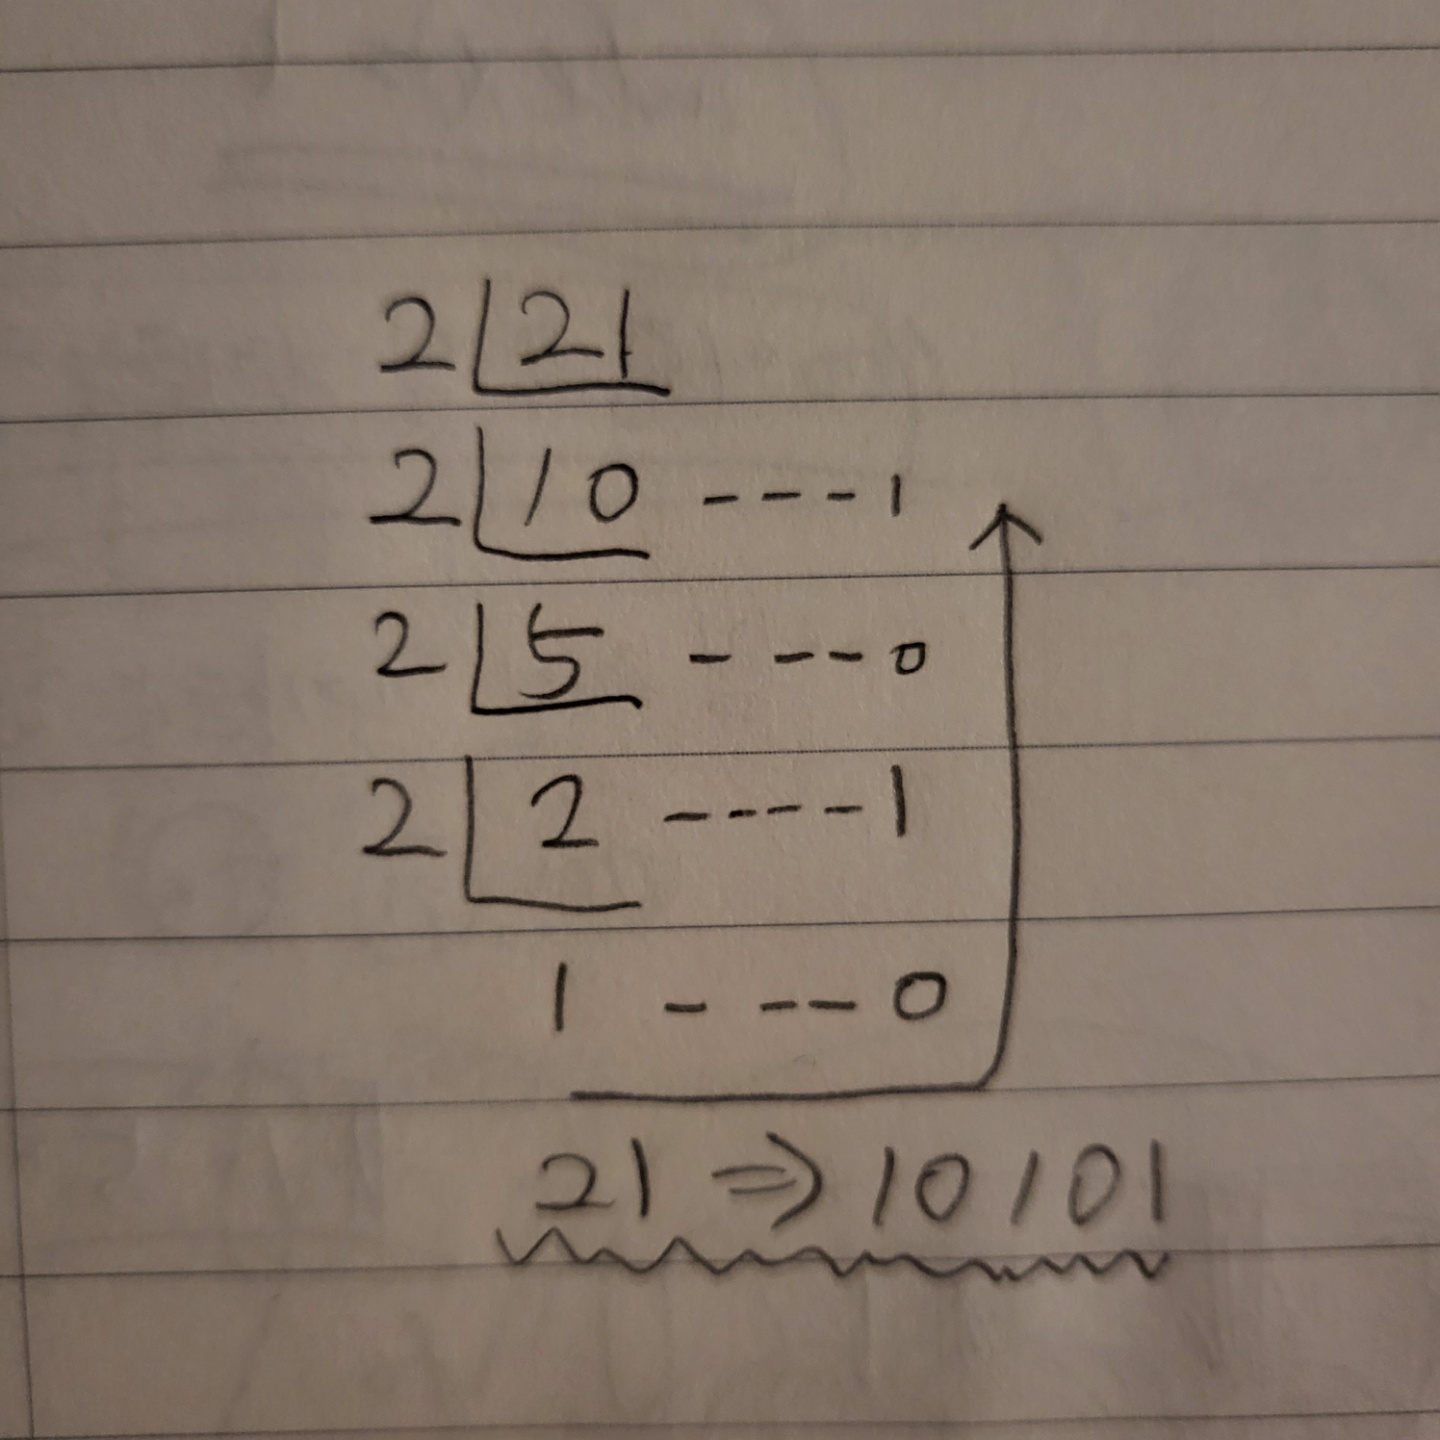 2 21
2 10 ---1
2 5 ---0
2 2 ----1
1 ---0
21 ⇒ 10101